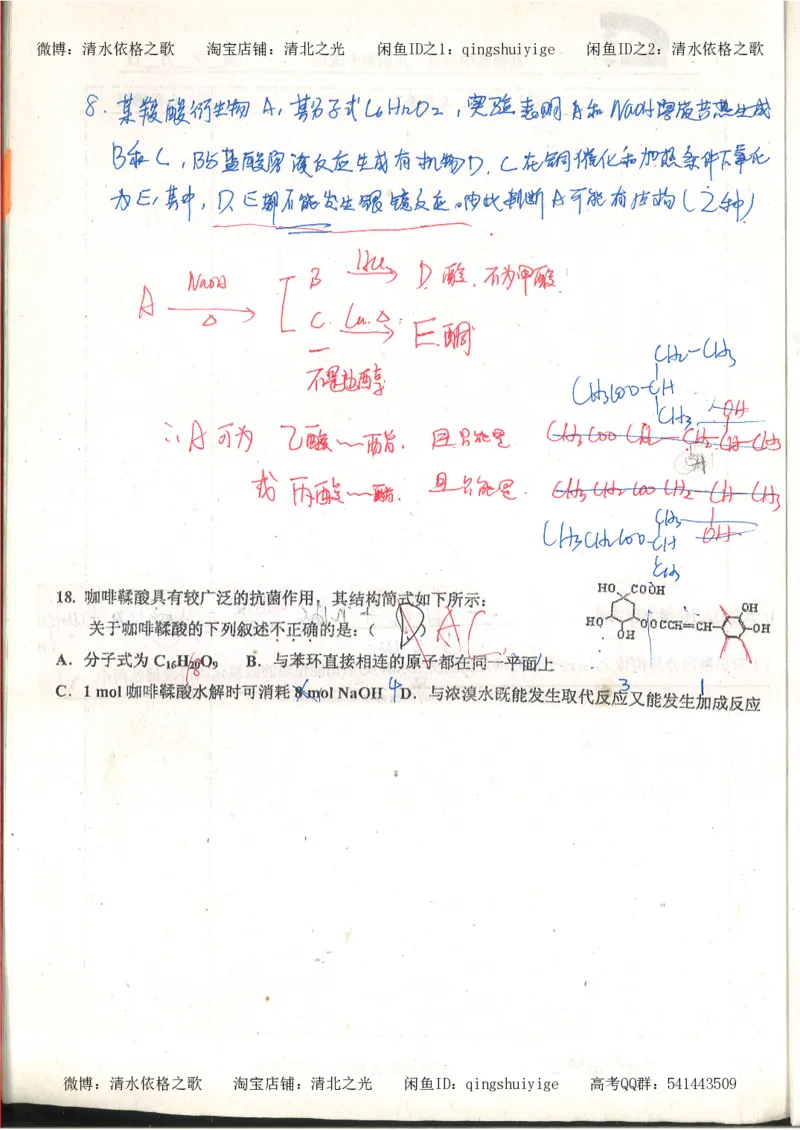 微博：清水依格之歌 淘宝店铺：清北之光 闲鱼ID之1：qingshuiyige 闲鱼ID之2：清水依格之歌
8. 某羧酸衍生物 A，其分子式C6H12O2，实验表明 A和 NaOH溶液共热生成
B和 C，B与盐酸溶液反应生成有机物D，C在铜催化和加热条件下氧化
为 E，其中，D、E都不能发生银镜反应。由此判断 A可能有结构（2种）
A NaOH △ B HCl D 酸，不为甲酸
C Cu.△ E 酮
CH2-CH3
CH3COO-CH
CH3
∴A 可为 乙酸～酯，且只能是 CH3COO CH2-CH2-CH-CH3
OH
或 丙酸～酯，且只能是 CH3CH2COO CH2-CH-CH3
OH
CH3
CH3CH2COO-CH
CH3
18. 咖啡鞣酸具有较广泛的抗菌作用，其结构简式如下所示：
HO COOH
HO OH OOCCH=CH OH OH
关于咖啡鞣酸的下列叙述不正确的是：（ D ） A C
A．分子式为 C16H20O9 B．与苯环直接相连的原子都在同一平面上
18
C．1 mol 咖啡鞣酸水解时可消耗 8 mol NaOH 4 D．与浓溴水既能发生取代反应又能发生加成反应
3 1
微博：清水依格之歌 淘宝店铺：清北之光 闲鱼ID：qingshuiyige 高考QQ群：541443509